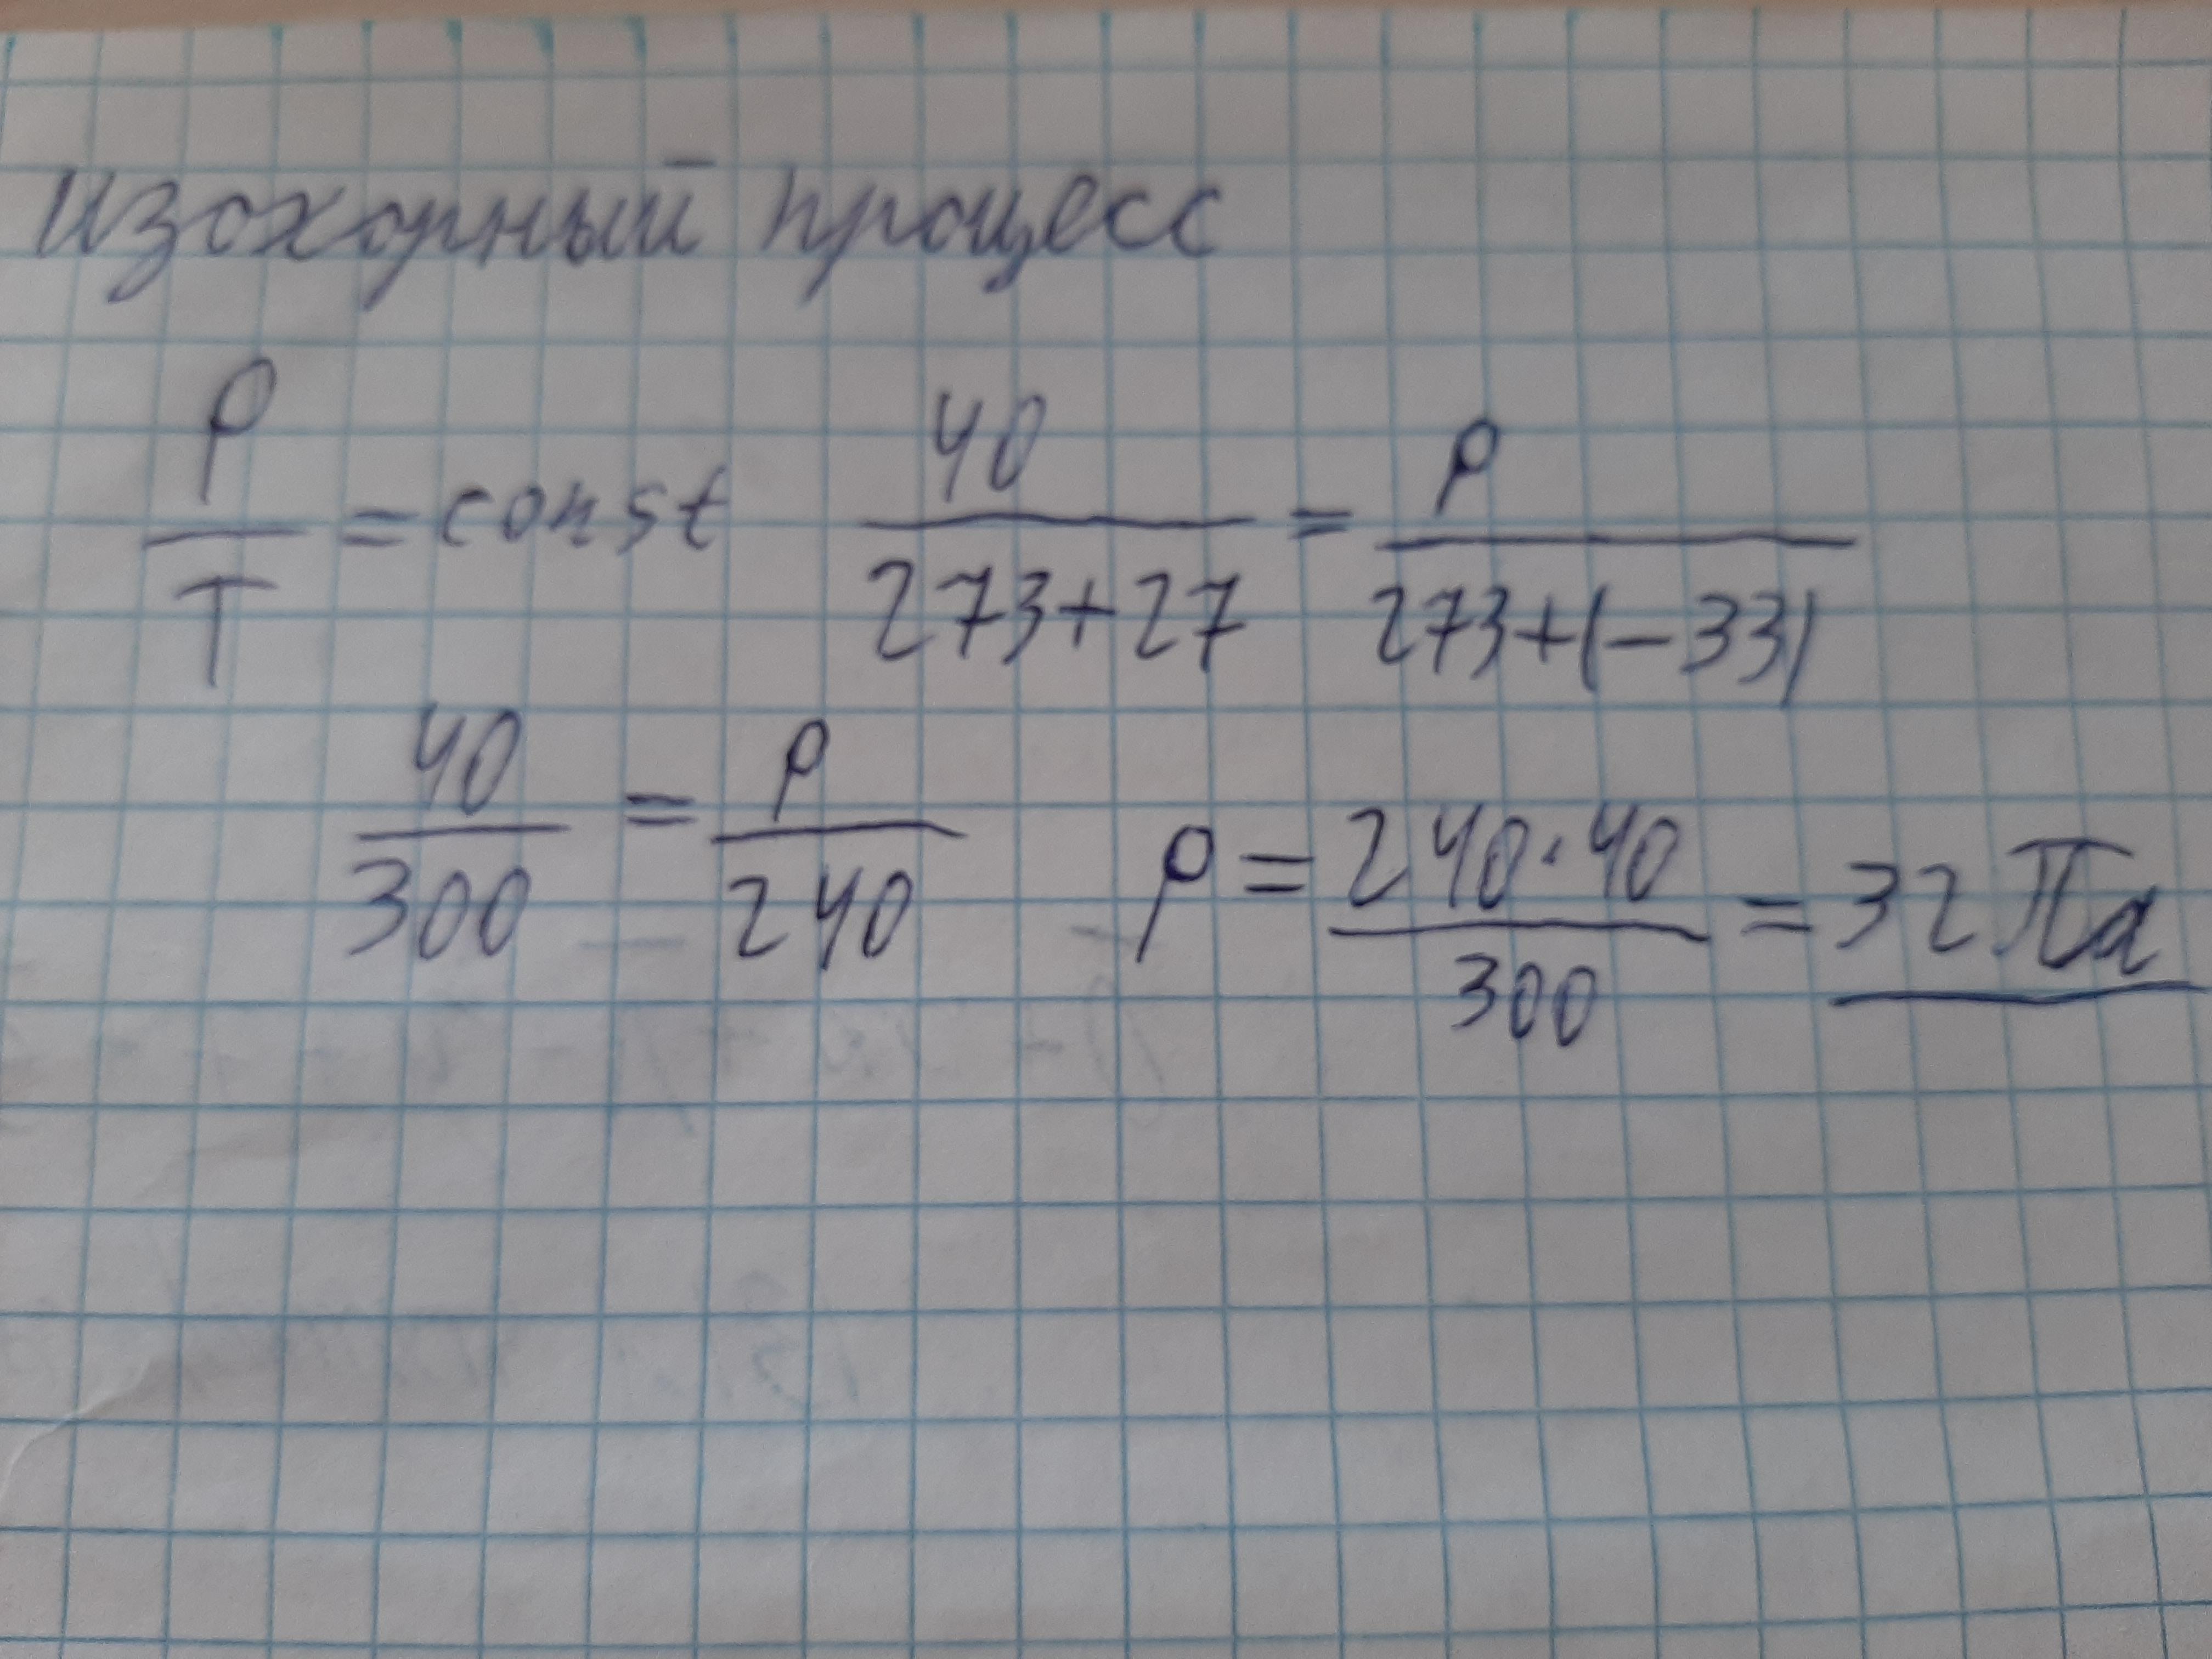 изохорный процесс
P/T = const 40/(273+27) = P/(273+(-33)
40/300 = P/240 P = 240·40/300 = 32 Па